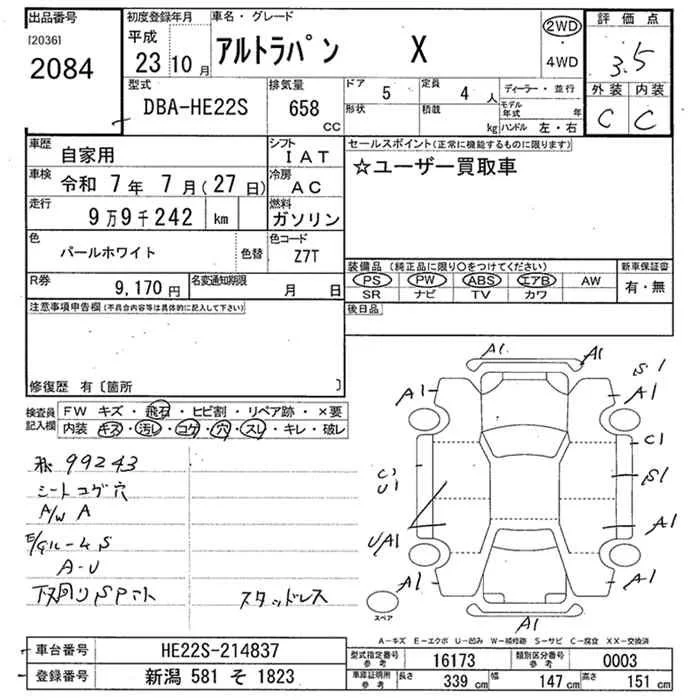 出品番号
[2036]
2084
初度登録年月
平成
23 10 月
車名・グレード
アルトラパン X
2WD
・
4WD
評価点
3.5
外装 内装
C C
型式
DBA-HE22S
排気量
658
CC
ドア 5
定員 4 人
ディーラー・並行
形状
積載
kg
モデル年式 年
ハンドル 左・右
車歴
自家用
シフト
IAT
車検 令和 7年 7月(27日)
冷房
AC
走行
9万9千242 km
燃料
ガソリン
色
パールホワイト
色替
色コード
Z7T
R券
9,170 円
名変通知期限
月 日
セールスポイント(正常に機能するものに限ります)
☆ユーザー買取車
装備品(純正品に限り○をつけてください)
新車保証書
PS PW ABS エアB AW
有・無
SR ナビ TV カワ
後日品
注意事項申告欄(不具合内容等は具体的に記入して下さい)
修復歴 有〔箇所 〕
検査員
記入欄
FW キズ・飛石・ヒビ割・リペア跡・×要
内装 キズ・汚レ・コゲ・穴・スレ・キレ・破レ
99243
シートコゲ穴
A/W A
S
A-U
下回りSPサト
スタッドレス
A1
A1
S1
A1
A1
C1
C1
U1
S1
U/A1
A1
A1
A1
A1
スペア
A-キズ E-エクボ U-凹み W-補修跡 S-サビ C-腐食 XX-交換済
車台番号
HE22S-214837
登録番号
新潟 581 そ 1823
型式指定番号
参考
16173
類別区分番号
参考
0003
車庫証明用
参考
長さ 339 cm
幅 147 cm
高さ 151 cm